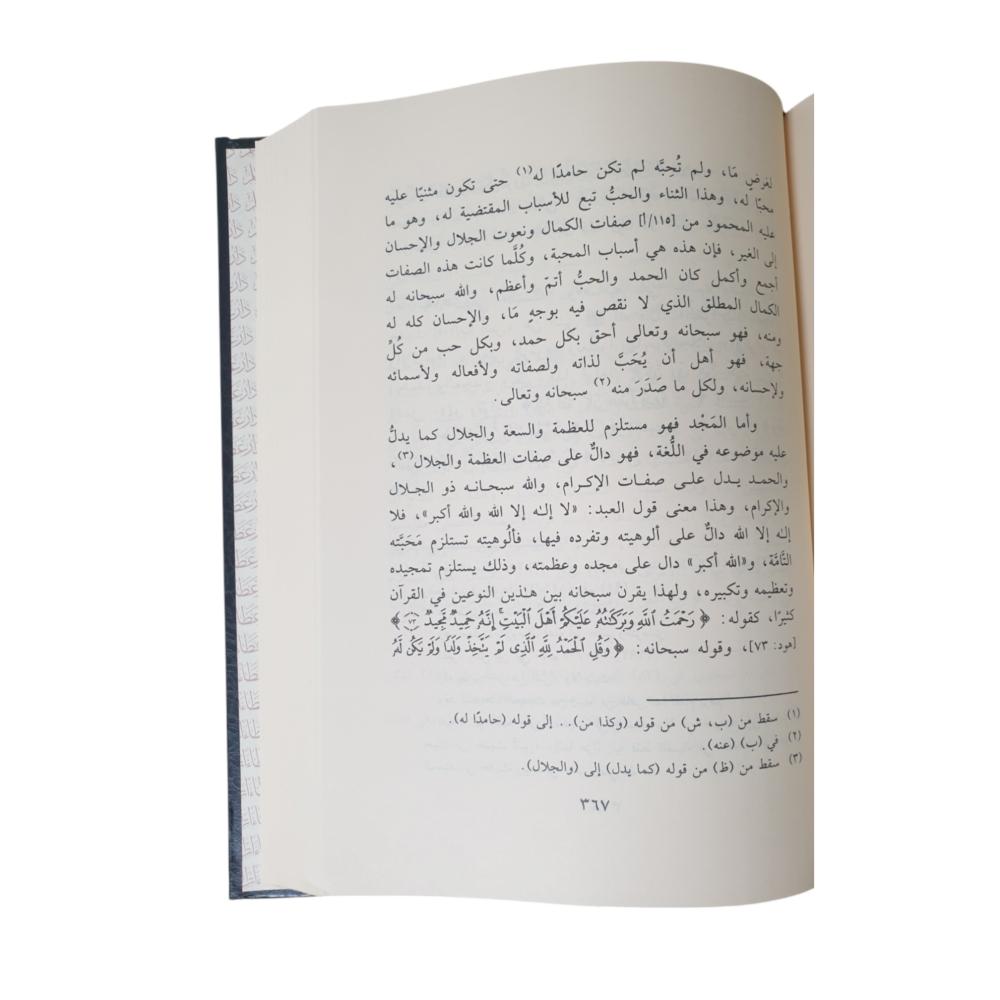 لغرضٍ مَا، ولم تُحِبَّه لم تكن حامدًا له(١) حتى تكون مثنيًا عليه
محبًا له، وهذا الثناء والحبُّ تبع للأسباب المقتضية له، وهو ما
عليه المحمود من [١١٥/أ] صفات الكمال ونعوت الجلال والإحسان
إلى الغير، فإن هذه هي أسباب المحبة، وكُلَّما كانت هذه الصفات
أجمع وأكمل كان الحمد والحبُّ أتمّ وأعظم، والله سبحانه له
الكمال المطلق الذي لا نقص فيه بوجهٍ مَا، والإحسان كله له
ومنه، فهو سبحانه وتعالى أحق بكل حمد، وبكل حب من كُلِّ
جهة، فهو أهل أن يُحَبَّ لذاته ولصفاته ولأفعاله ولأسمائه
ولإحسانه، ولكل ما صَدَرَ منه(٢) سبحانه وتعالى.
وأما المَجْد فهو مستلزم للعظمة والسعة والجلال كما يدلُّ
عليه موضوعه في اللُّغة، فهو دالٌّ على صفات العظمة والجلال(٣)،
والحمد يدل على صفات الإكرام، والله سبحانه ذو الجلال
والإكرام، وهذا معنى قول العبد: «لا إله إلا الله والله أكبر»، فلا
إله إلا الله دالٌّ على ألوهيته وتفرده فيها، فألُوهيته تستلزم مَحَبَّته
التَّامَّة، و«الله أكبر» دال على مجده وعظمته، وذلك يستلزم تمجيده
وتعظيمه وتكبيره، ولهذا يقرن سبحانه بين هـٰذين النوعين في القرآن
كثيرًا، كقوله: ﴿رَحْمَتُ ٱللَّهِ وَبَرَكَٰتُهُۥ عَلَيْكُمْ أَهْلَ ٱلْبَيْتِ ۚ إِنَّهُۥ حَمِيدٌ مَّجِيدٌ ٧٣﴾
[هود: ٧٣]، وقوله سبحانه: ﴿وَقُلِ ٱلْحَمْدُ لِلَّهِ ٱلَّذِى لَمْ يَتَّخِذْ وَلَدًا وَلَمْ يَكُن لَّهُۥ
(١) سقط من (ب، ش) من قوله (وكذا من).. إلى قوله (حامدًا له).
(٢) في (ب) (عنه).
(٣) سقط من (ظ) من قوله (كما يدل) إلى (والجلال).
٣٦٧